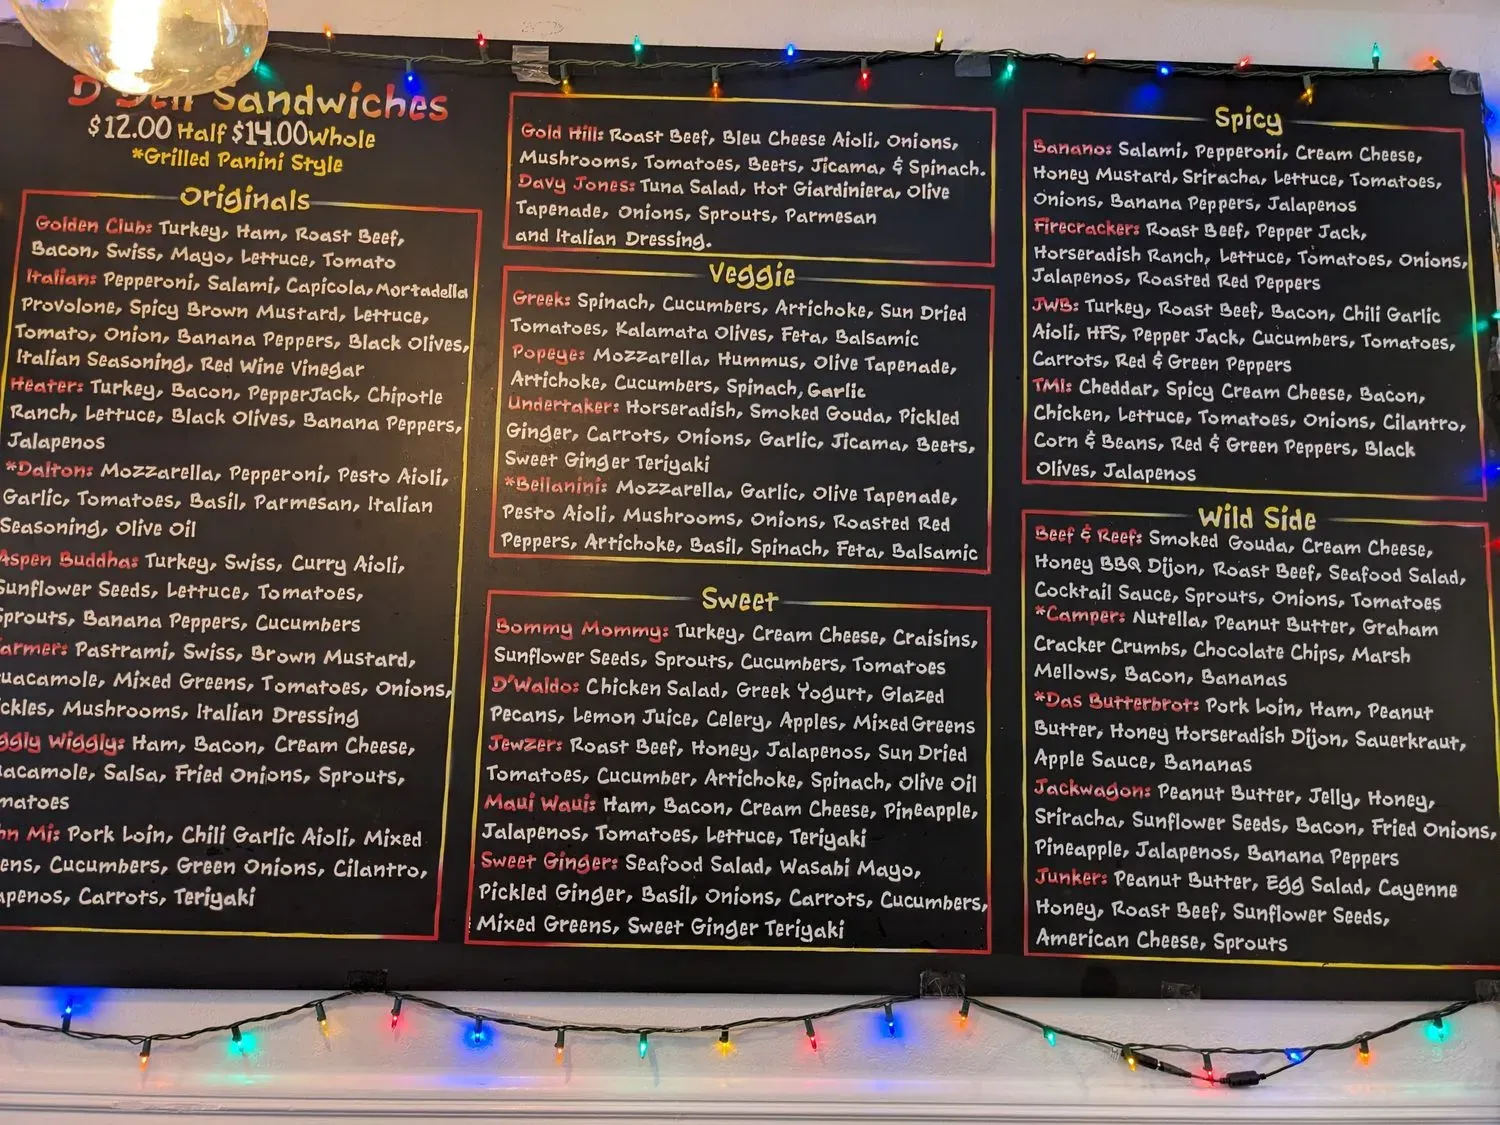 Sandwiches
$12.00 Half $14.00 Whole
*Grilled Panini Style
Originals
Golden Club: Turkey, Ham, Roast Beef,
Bacon, Swiss, Mayo, Lettuce, Tomato
Italian: Pepperoni, Salami, Capicola, Mortadella
Provolone, Spicy Brown Mustard, Lettuce,
Tomato, Onion, Banana Peppers, Black Olives,
Italian Seasoning, Red Wine Vinegar
Heater: Turkey, Bacon, PepperJack, Chipotle
Ranch, Lettuce, Black Olives, Banana Peppers,
Jalapenos
*Dalton: Mozzarella, Pepperoni, Pesto Aioli,
Garlic, Tomatoes, Basil, Parmesan, Italian
Seasoning, Olive Oil
Aspen Buddha: Turkey, Swiss, Curry Aioli,
Sunflower Seeds, Lettuce, Tomatoes,
Sprouts, Banana Peppers, Cucumbers
armer: Pastrami, Swiss, Brown Mustard,
uacamole, Mixed Greens, Tomatoes, Onions,
ickles, Mushrooms, Italian Dressing
ggly Wiggly: Ham, Bacon, Cream Cheese,
uacamole, Salsa, Fried Onions, Sprouts,
matoes
hn Mi: Pork Loin, Chili Garlic Aioli, Mixed
ens, Cucumbers, Green Onions, Cilantro,
apenos, Carrots, Teriyaki
Gold Hill: Roast Beef, Bleu Cheese Aioli, Onions,
Mushrooms, Tomatoes, Beets, Jicama, & Spinach.
Davy Jones: Tuna Salad, Hot Giardiniera, Olive
Tapenade, Onions, Sprouts, Parmesan
and Italian Dressing.
Veggie
Greek: Spinach, Cucumbers, Artichoke, Sun Dried
Tomatoes, Kalamata Olives, Feta, Balsamic
Popeye: Mozzarella, Hummus, Olive Tapenade,
Artichoke, Cucumbers, Spinach, Garlic
Undertaker: Horseradish, Smoked Gouda, Pickled
Ginger, Carrots, Onions, Garlic, Jicama, Beets,
Sweet Ginger Teriyaki
*Bellanini: Mozzarella, Garlic, Olive Tapenade,
Pesto Aioli, Mushrooms, Onions, Roasted Red
Peppers, Artichoke, Basil, Spinach, Feta, Balsamic
Sweet
Bommy Mommy: Turkey, Cream Cheese, Craisins,
Sunflower Seeds, Sprouts, Cucumbers, Tomatoes
D'Waldo: Chicken Salad, Greek Yogurt, Glazed
Pecans, Lemon Juice, Celery, Apples, Mixed Greens
Jewzer: Roast Beef, Honey, Jalapenos, Sun Dried
Tomatoes, Cucumber, Artichoke, Spinach, Olive Oil
Maui Waui: Ham, Bacon, Cream Cheese, Pineapple,
Jalapenos, Tomatoes, Lettuce, Teriyaki
Sweet Ginger: Seafood Salad, Wasabi Mayo,
Pickled Ginger, Basil, Onions, Carrots, Cucumbers,
Mixed Greens, Sweet Ginger Teriyaki
Spicy
Banano: Salami, Pepperoni, Cream Cheese,
Honey Mustard, Sriracha, Lettuce, Tomatoes,
Onions, Banana Peppers, Jalapenos
Firecracker: Roast Beef, Pepper Jack,
Horseradish Ranch, Lettuce, Tomatoes, Onions,
Jalapenos, Roasted Red Peppers
JWB: Turkey, Roast Beef, Bacon, Chili Garlic
Aioli, HFS, Pepper Jack, Cucumbers, Tomatoes,
Carrots, Red & Green Peppers
TMI: Cheddar, Spicy Cream Cheese, Bacon,
Chicken, Lettuce, Tomatoes, Onions, Cilantro,
Corn & Beans, Red & Green Peppers, Black
Olives, Jalapenos
Wild Side
Beef & Reef: Smoked Gouda, Cream Cheese,
Honey BBQ Dijon, Roast Beef, Seafood Salad,
Cocktail Sauce, Sprouts, Onions, Tomatoes
*Camper: Nutella, Peanut Butter, Graham
Cracker Crumbs, Chocolate Chips, Marsh
Mellows, Bacon, Bananas
*Das Butterbrot: Pork Loin, Ham, Peanut
Butter, Honey Horseradish Dijon, Sauerkraut,
Apple Sauce, Bananas
Jackwagon: Peanut Butter, Jelly, Honey,
Sriracha, Sunflower Seeds, Bacon, Fried Onions,
Pineapple, Jalapenos, Banana Peppers
Junker: Peanut Butter, Egg Salad, Cayenne
Honey, Roast Beef, Sunflower Seeds,
American Cheese, Sprouts